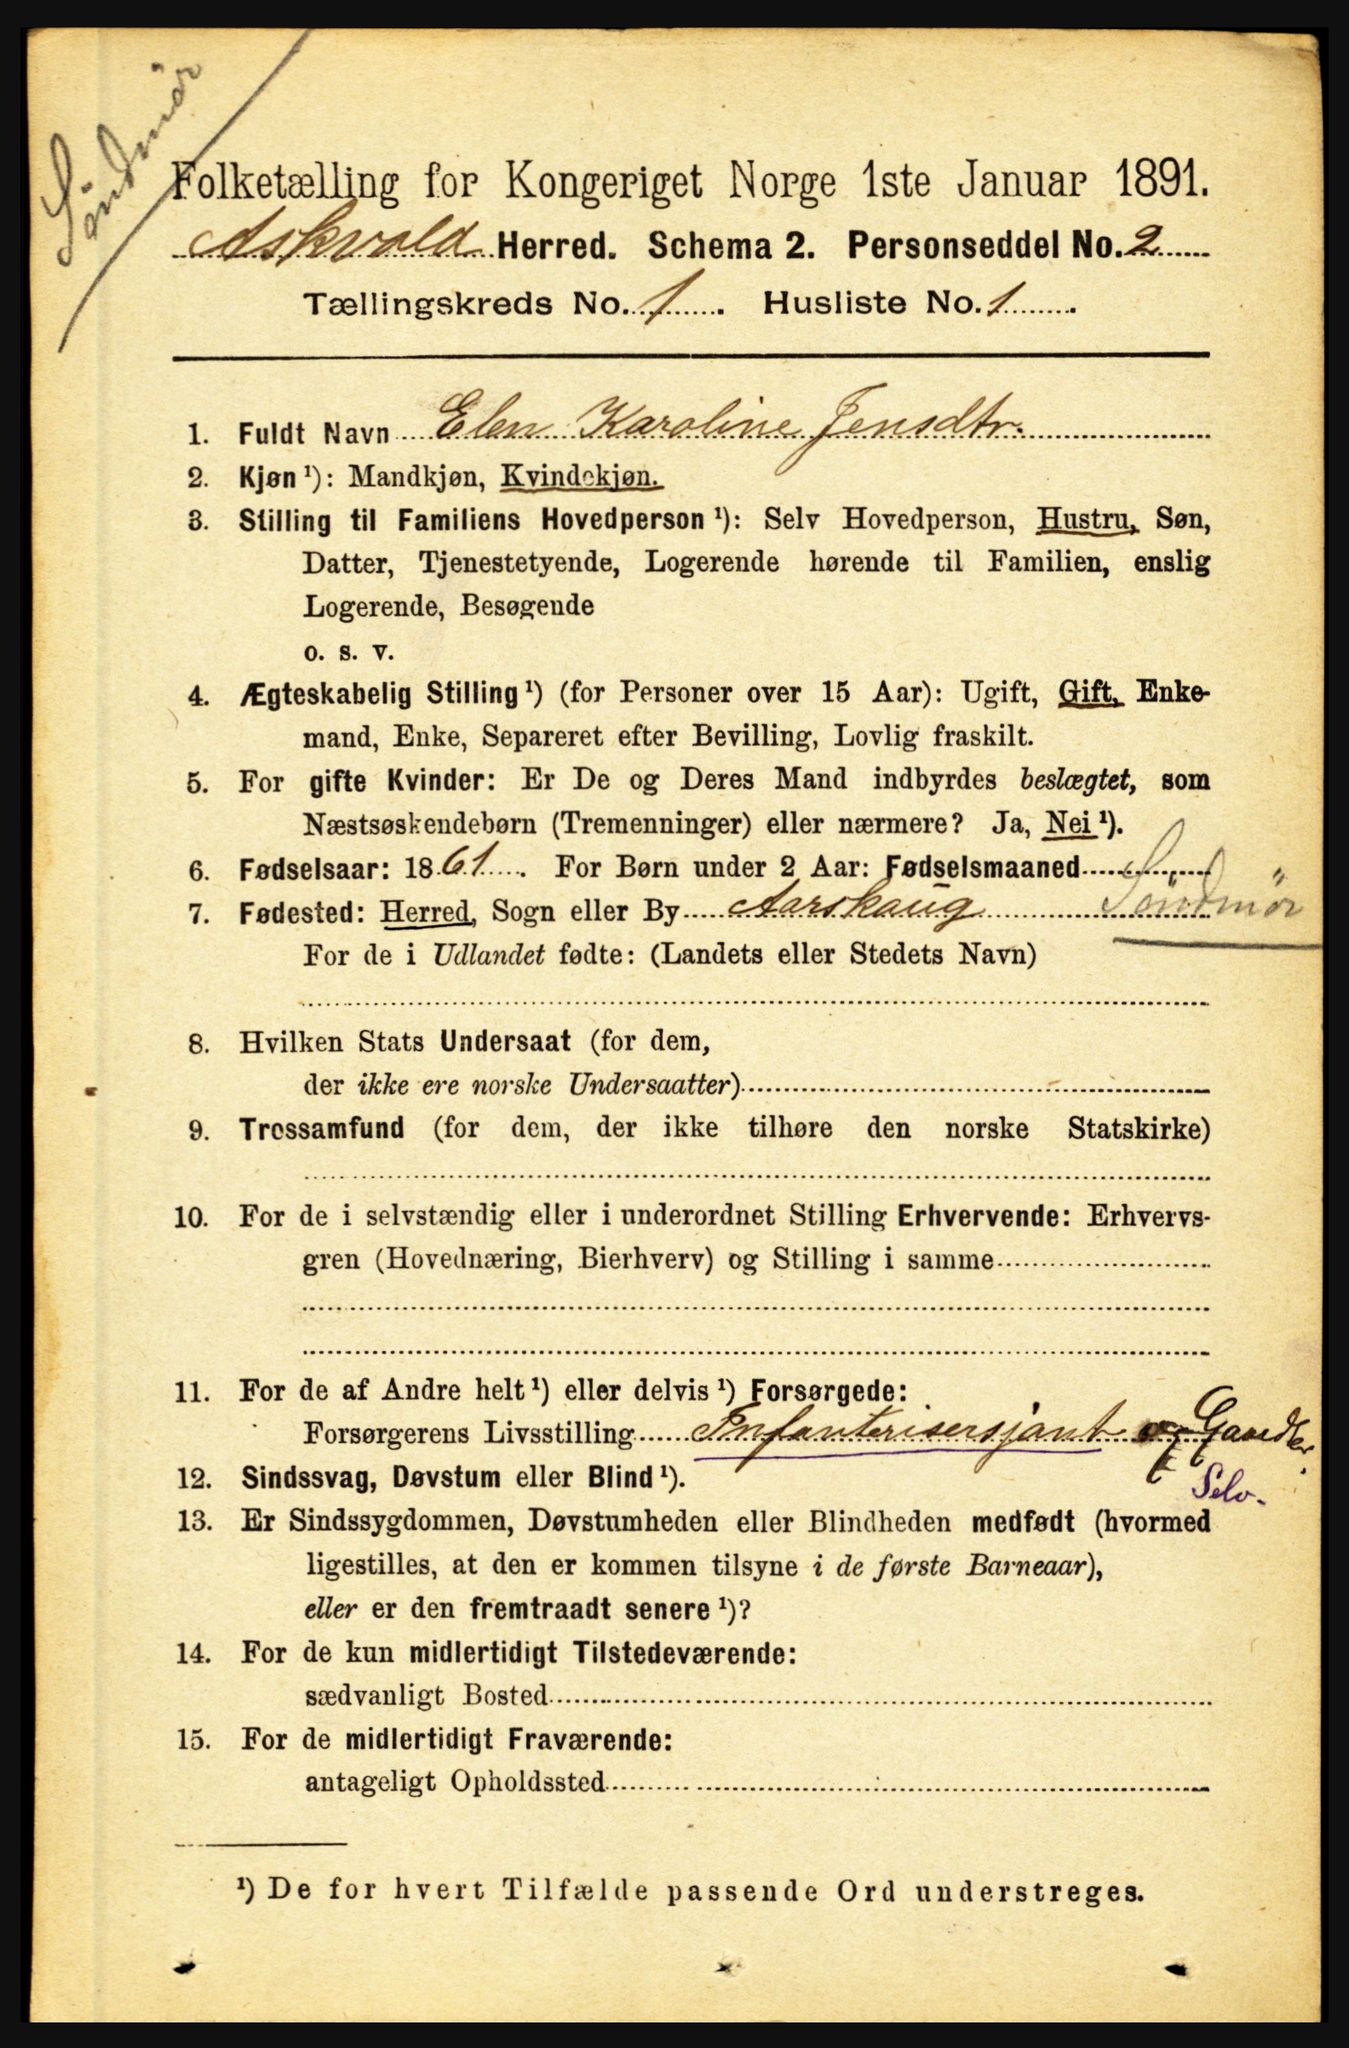 Söndmör
Folketælling for Kongeriget Norge 1ste Januar 1891.
Askvold Herred. Schema 2. Personseddel No. 2
Tællingskreds No. 1. Husliste No. 1.
1. Fuldt Navn Elen Karoline Jensdtr.
2. Kjøn ¹): Mandkjøn, Kvindekjøn.
3. Stilling til Familiens Hovedperson ¹): Selv Hovedperson, Hustru, Søn,
Datter, Tjenestetyende, Logerende hørende til Familien, enslig
Logerende, Besøgende
o. s. v.
4. Ægteskabelig Stilling ¹) (for Personer over 15 Aar): Ugift, Gift, Enke-
mand, Enke, Separeret efter Bevilling, Lovlig fraskilt.
5. For gifte Kvinder: Er De og Deres Mand indbyrdes beslægtet, som
Næstsøskendebørn (Tremenninger) eller nærmere? Ja, Nei ¹).
6. Fødselsaar: 1861. For Børn under 2 Aar: Fødselsmaaned
7. Fødested: Herred, Sogn eller By Aarskaug Söndmör
For de i Udlandet fødte: (Landets eller Stedets Navn)
8. Hvilken Stats Undersaat (for dem,
der ikke ere norske Undersaatter)
9. Trossamfund (for dem, der ikke tilhøre den norske Statskirke)
10. For de i selvstændig eller i underordnet Stilling Erhvervende: Erhvervs-
gren (Hovednæring, Bierhverv) og Stilling i samme
11. For de af Andre helt ¹) eller delvis ¹) Forsørgede:
Forsørgerens Livsstilling Infanterisersjant og Gaardbr.
Selv.
12. Sindssvag, Døvstum eller Blind ¹).
13. Er Sindssygdommen, Døvstumheden eller Blindheden medfødt (hvormed
ligestilles, at den er kommen tilsyne i de første Barneaar),
eller er den fremtraadt senere ¹)?
14. For de kun midlertidigt Tilstedeværende:
sædvanligt Bosted
15. For de midlertidigt Fraværende:
antageligt Opholdssted
¹) De for hvert Tilfælde passende Ord understreges.